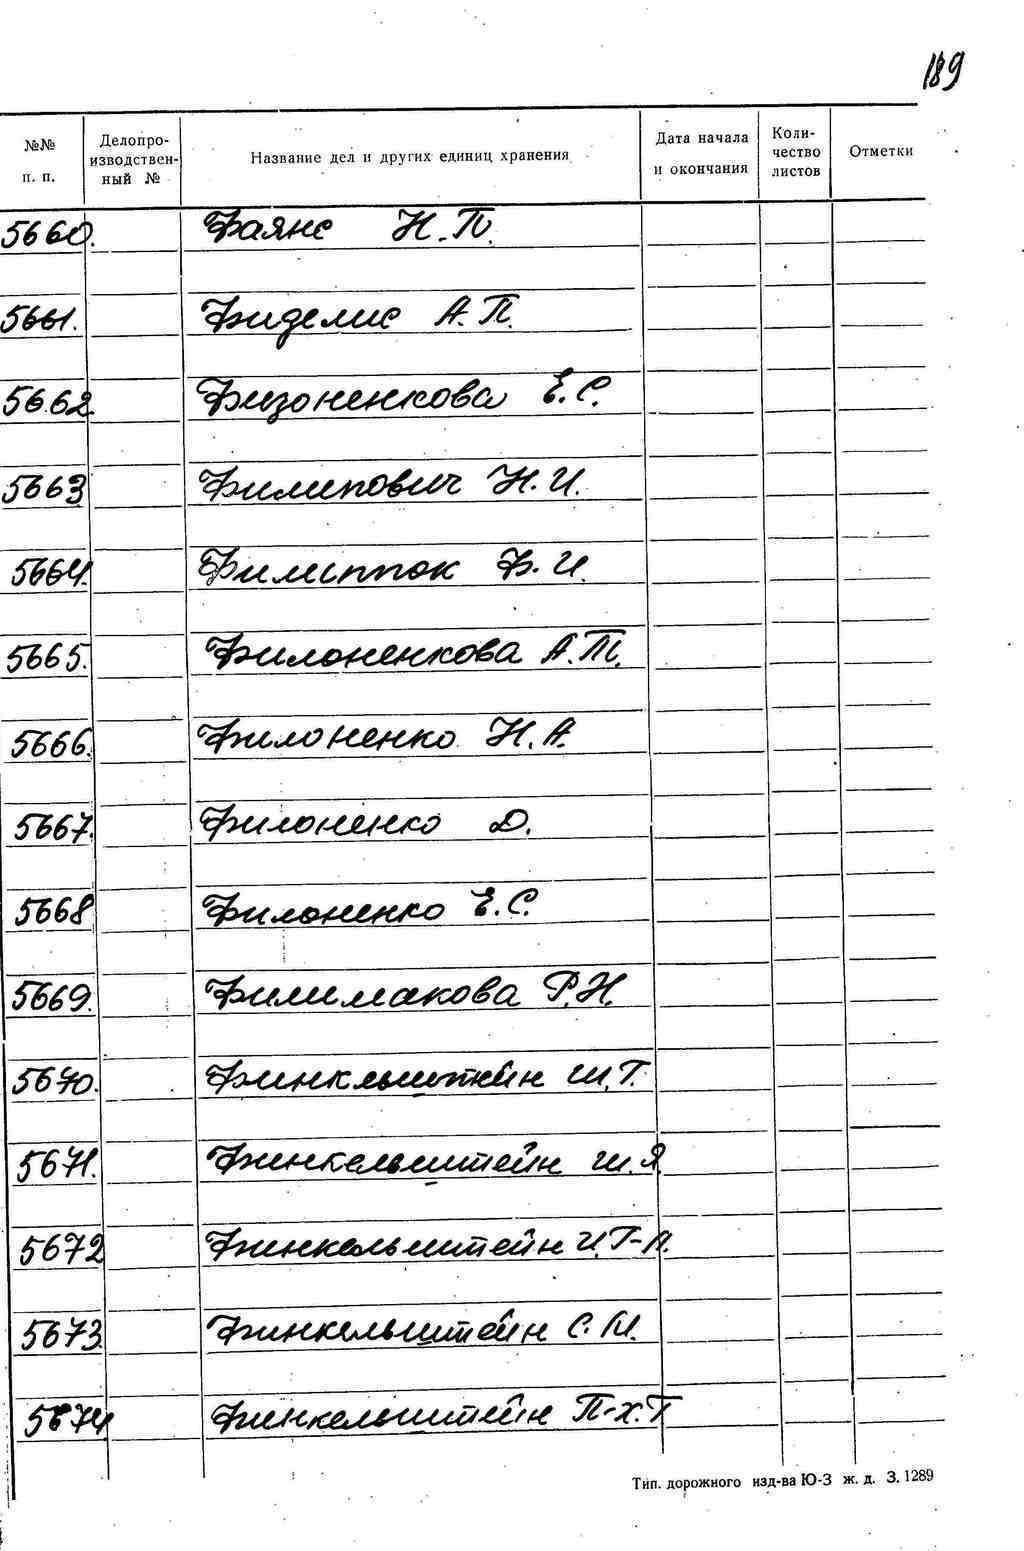 189
№№ п. п. Делопроизводственный № Название дел и других единиц хранения Дата начала и окончания Количество листов Отметки
5660. Фаянс Н.П.
5661. Фиделис А.П.
5662. Физоненкова Е.С.
5663 Филипович Н.И.
5664. Филиппок Ф.И.
5665. Филоненкова А.Т.
5666. Филоненко Н.А.
5667. Филоненко Д.
5668 Филоненко Е.С.
5669. Филимакова Р.Н.
5670. Финкельштейн Ш.Г.
5671. Финкельштейн Ш.Я.
5672 Финкельштейн И.Г-Л.
5673. Финкельштейн С.М.
5674 Финкельштейн П-Х.Г
Тип. дорожного изд-ва Ю-З ж. д. З. 1289